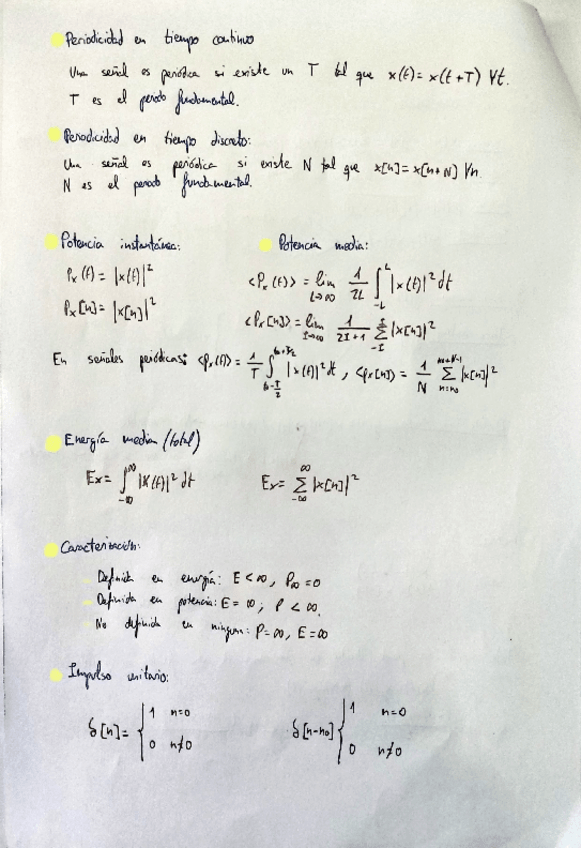 Periodicidad en tiempo continuo
Una señal es periódica si existe un T tal que x(t) = x(t+T) ∀t.
T es el periodo fundamental.
Periodicidad en tiempo discreto:
Una señal es periódica si existe N tal que x[n] = x[n+N] ∀n.
N es el periodo fundamental.
Potencia instantánea: Potencia media:
Px(t) = |x(t)|² <Px(t)> = lim L→∞ 1/2L ∫_{-L}^{L} |x(t)|² dt
Px[n] = |x[n]|² <Px[n]> = lim I→∞ 1/(2I+1) Σ_{-I}^{I} |x[n]|²
En señales periódicas: <Px(t)> = 1/T ∫ |x(t)|² dt, <Px[n]> = 1/N Σ |x[n]|²
Energía media (total)
Ex = ∫_{-∞}^{∞} |x(t)|² dt Ex = Σ_{-∞}^{∞} |x[n]|²
Caracterización:
- Definida en energía: E < ∞, P∞ = 0
- Definida en potencia: E = ∞; P < ∞.
- No definida en ninguna: P = ∞, E = ∞
Impulso unitario:
δ[n] = { 1 n=0 δ[n-n₀] { 1 n=0
0 n≠0 0 n≠0